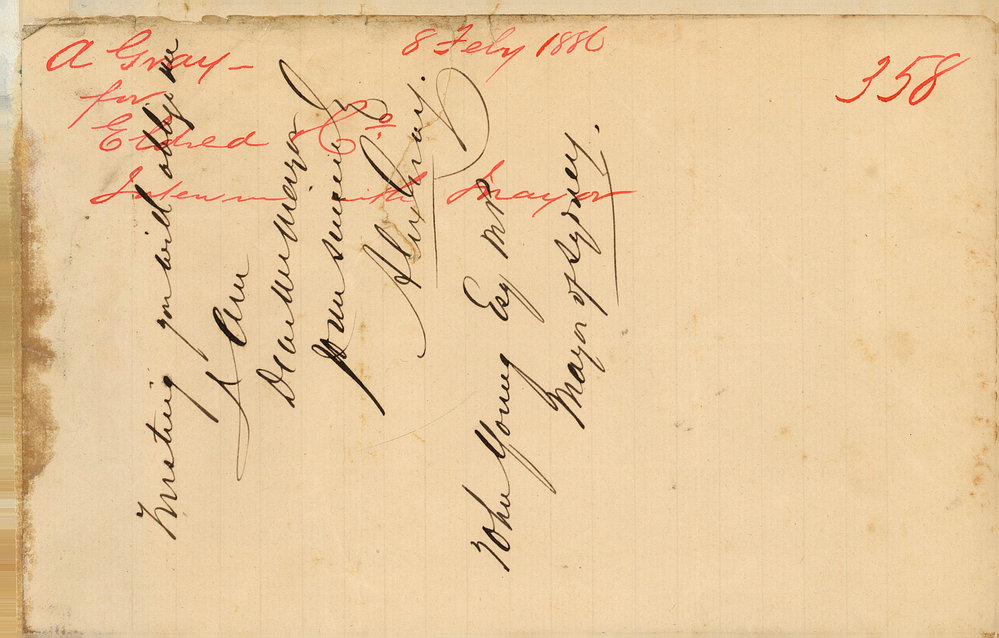 A Gray –
8 Feby 1886
358
for
Eldred & Co
Interview with Mayor
Trusting you will oblige me
I am
Dear Mr Mayor
Yours sincerely
Alex Gray.
John Young Esq MP
Mayor of Sydney.